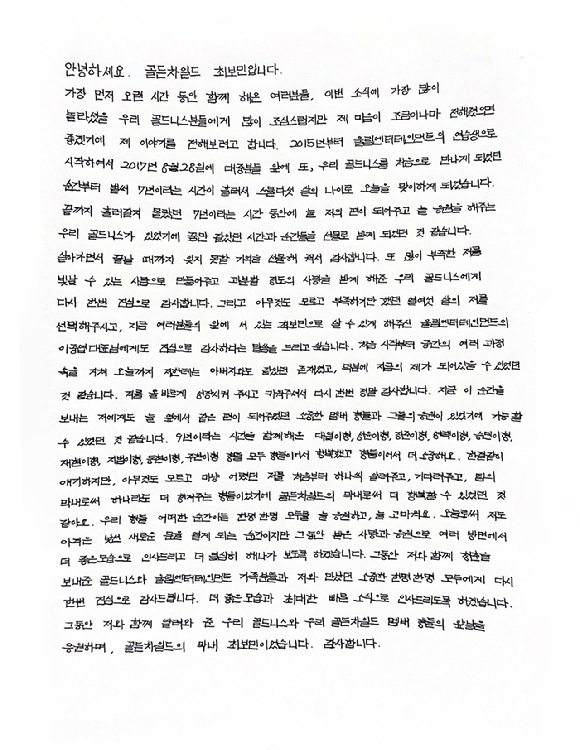 안녕하세요. 골든차일드 최보민입니다.
가장 먼저 오랜 시간 동안 함께 해온 여러분들, 이번 소식에 가장 많이
놀라셨을 우리 골드니스분들에게 많이 조심스럽지만 제 마음이 조금이나마 전해졌으면
좋겠기에 제 이야기를 전해보려고 합니다. 2015년부터 울림엔터테인먼트의 연습생으로
시작하여서 2017년 8월 28일에 대중분들 앞에 또, 우리 골드니스를 처음으로 만나게 되었던
순간부터 벌써 7년이라는 시간이 흘러서 스물다섯 살의 나이로 오늘을 맞이하게 되었습니다.
끝까지 흘러갈지 몰랐던 7년이라는 시간 동안에 늘 저의 편이 되어주고 늘 응원을 해주는
우리 골드니스가 있었기에 꿈만 같았던 시간과 순간들을 선물로 받게 되었던 것 같습니다.
살아가면서 끝날 때까지 잊지 못할 가치를 선물해 줘서 감사합니다. 또 많이 부족한 저를
빛날 수 있는 사람으로 만들어주고 과분할 정도의 사랑을 받게 해준 우리 골드니스에게
다시 한번 진심으로 감사합니다. 그리고 아무것도 모르고 부족하기만 했던 열여섯 살의 저를
선택해주시고, 지금 여러분들의 앞에 서 있는 최보민으로 살 수 있게 해주신 울림엔터테인먼트의
이중엽 대표님에게도 진심으로 감사하다는 말씀을 드리고 싶습니다. 처음 시작부터 중간의 여러 과정
속을 거쳐 오늘까지 저한테는 아버지와도 같았던 존재였고, 덕분에 지금의 제가 되어있을 수 있었던
것 같습니다. 저를 올바르게 성장시켜 주시고 가르쳐주셔서 다시 한번 정말 감사합니다. 지금 이 순간을
보내는 저에게도 늘 옆에서 같은 편이 되어주었던 소중한 멤버 형들과 그들의 응원이 있었기에 가능할
수 있었던 것 같습니다. 9년이라는 시간을 함께해온 대열이형, 성윤이형, 장준이형, 영택이형, 승민이형,
재현이형, 지범이형, 동현이형, 주찬이형 형들 모두 형들이어서 행복했고 형들이어서 더 소중해요. 한결같이
얘기하지만, 아무것도 모르고 마냥 어렸던 저를 처음부터 하나씩 알려주고, 기다려주고, 팀의
막내로써 하나라도 더 챙겨주는 형들이었기에 골든차일드의 막내로써 더 행복할 수 있었던 것
같아요. 우리 형들 어떠한 순간이든 한명 한명 모두를 늘 응원하고, 늘 고마워요. 오늘로써 저도
아직은 낯선 새로운 문을 열게 되는 순간이지만 그동안 받은 사랑과 응원으로 여러 방면에서
더 좋은모습으로 인사드리고 더 열심히 해나가 보도록 하겠습니다. 그동안 저와 함께 청춘을
보내준 골드니스와 울림엔터테인먼트 가족분들과 저와 만났던 소중한 한명 한명 모두에게 다시
한번 진심으로 감사드립니다. 더 좋은모습과 최대한 빠른 소식으로 인사드리도록 하겠습니다.
그동안 저와 함께 달려와 준 우리 골드니스와 우리 골든차일드 멤버 형들의 앞날을
응원하며, 골든차일드의 막내 최보민이었습니다. 감사합니다.